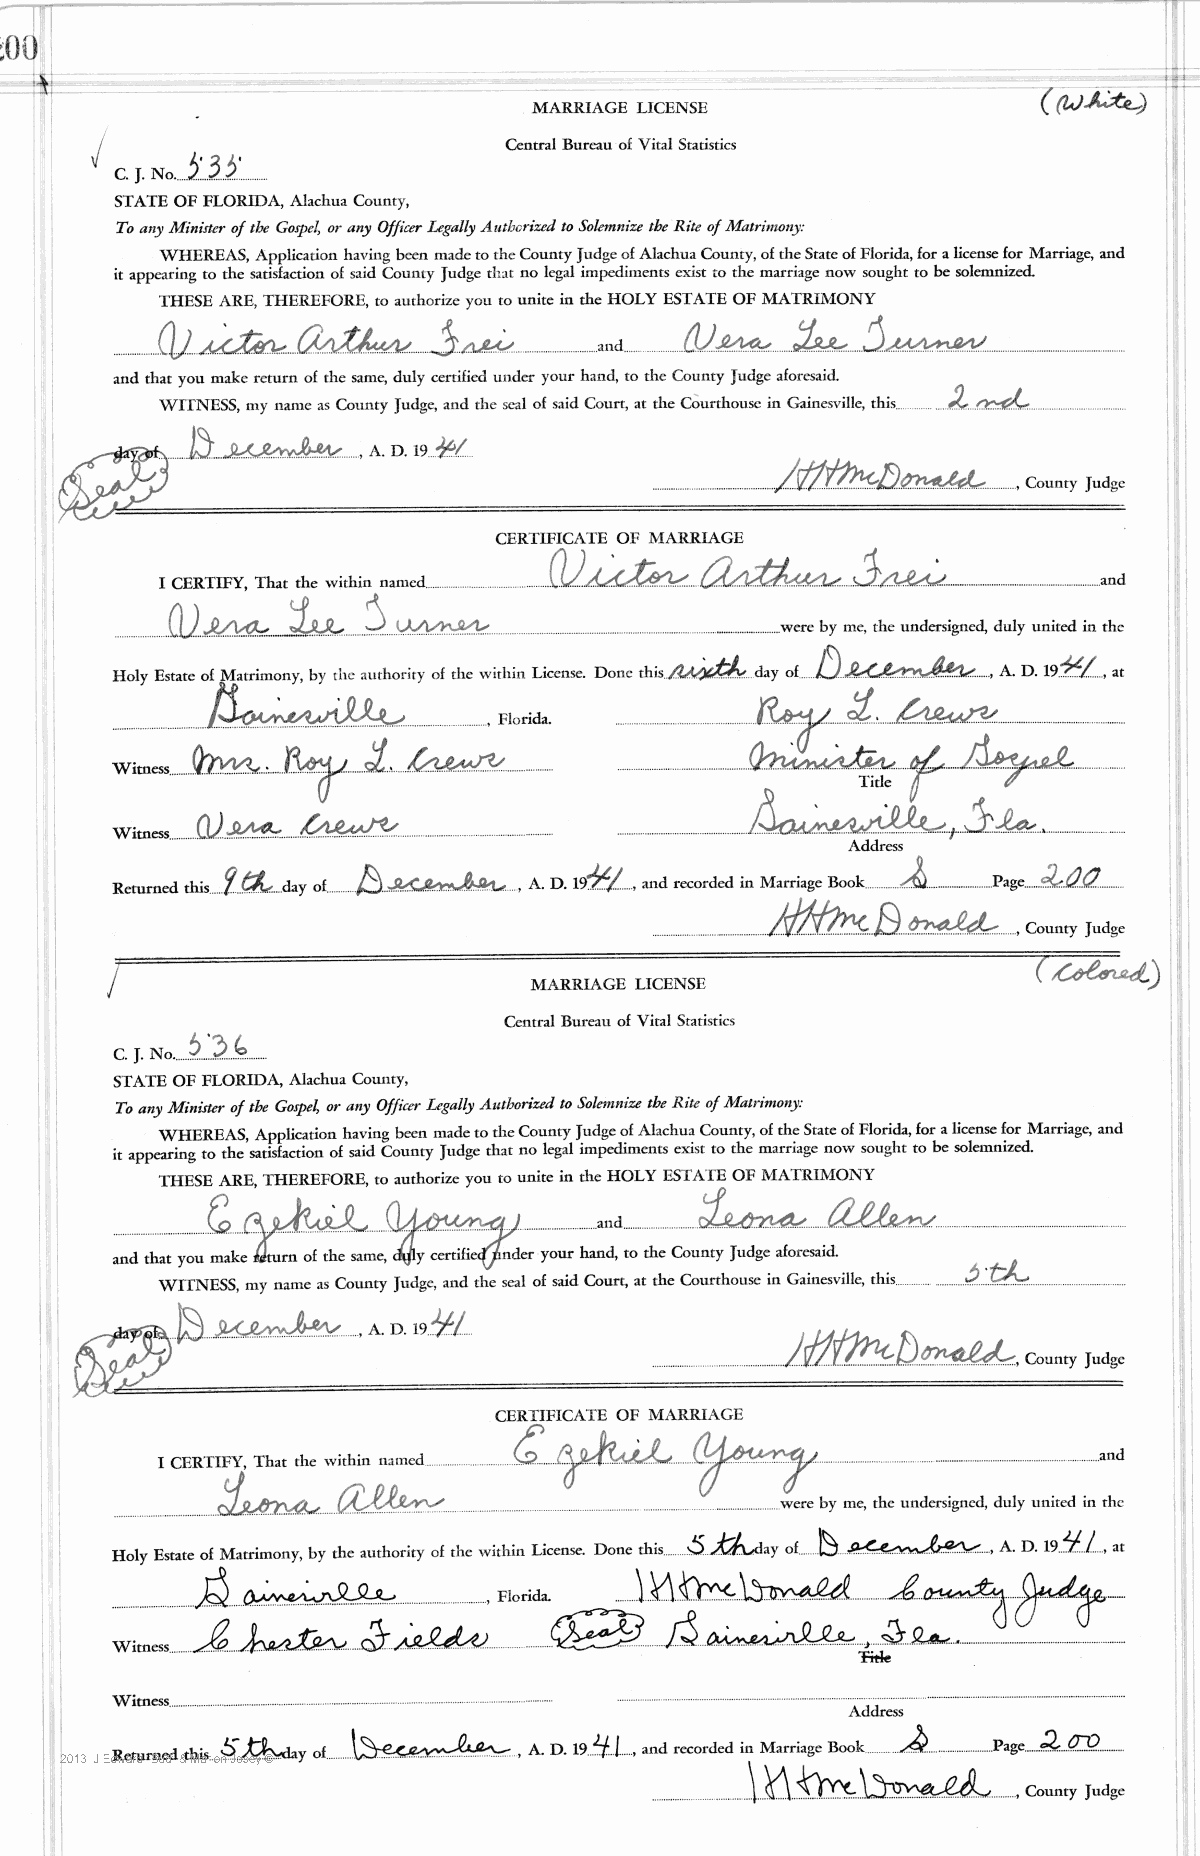 200
MARRIAGE LICENSE
(White)
Central Bureau of Vital Statistics
C. J. No. 535
STATE OF FLORIDA, Alachua County,
To any Minister of the Gospel, or any Officer Legally Authorized to Solemnize the Rite of Matrimony:
WHEREAS, Application having been made to the County Judge of Alachua County, of the State of Florida, for a license for Marriage, and
it appearing to the satisfaction of said County Judge that no legal impediments exist to the marriage now sought to be solemnized.
THESE ARE, THEREFORE, to authorize you to unite in the HOLY ESTATE OF MATRIMONY
Victor Arthur Frei and Vera Lee Turner
and that you make return of the same, duly certified under your hand, to the County Judge aforesaid.
WITNESS, my name as County Judge, and the seal of said Court, at the Courthouse in Gainesville, this 2nd
day of December, A. D. 1941
Seal
HHMcDonald, County Judge
CERTIFICATE OF MARRIAGE
I CERTIFY, That the within named Victor Arthur Frei and
Vera Lee Turner were by me, the undersigned, duly united in the
Holy Estate of Matrimony, by the authority of the within License. Done this sixth day of December, A. D. 1941, at
Gainesville, Florida. Roy L. Crews
Witness Mrs. Roy L. Crews Minister of Gospel
Title
Witness Vera Crews Gainesville, Fla.
Address
Returned this 9th day of December, A. D. 1941, and recorded in Marriage Book S Page 200
HHMcDonald, County Judge
(Colored)
MARRIAGE LICENSE
Central Bureau of Vital Statistics
C. J. No. 536
STATE OF FLORIDA, Alachua County,
To any Minister of the Gospel, or any Officer Legally Authorized to Solemnize the Rite of Matrimony:
WHEREAS, Application having been made to the County Judge of Alachua County, of the State of Florida, for a license for Marriage, and
it appearing to the satisfaction of said County Judge that no legal impediments exist to the marriage now sought to be solemnized.
THESE ARE, THEREFORE, to authorize you to unite in the HOLY ESTATE OF MATRIMONY
Ezekiel Young and Leona Allen
and that you make return of the same, duly certified under your hand, to the County Judge aforesaid.
WITNESS, my name as County Judge, and the seal of said Court, at the Courthouse in Gainesville, this 5th
day of December, A. D. 1941
Seal
HHMcDonald, County Judge
CERTIFICATE OF MARRIAGE
I CERTIFY, That the within named Ezekiel Young and
Leona Allen were by me, the undersigned, duly united in the
Holy Estate of Matrimony, by the authority of the within License. Done this 5th day of December, A. D. 1941, at
Gainesville, Florida. HHMcDonald County Judge
Witness Chester Fields Seal Gainesville, Fla.
Title
Witness
Address
Returned this 5th day of December, A. D. 1941, and recorded in Marriage Book S Page 200
2013 J
HHMcDonald, County Judge